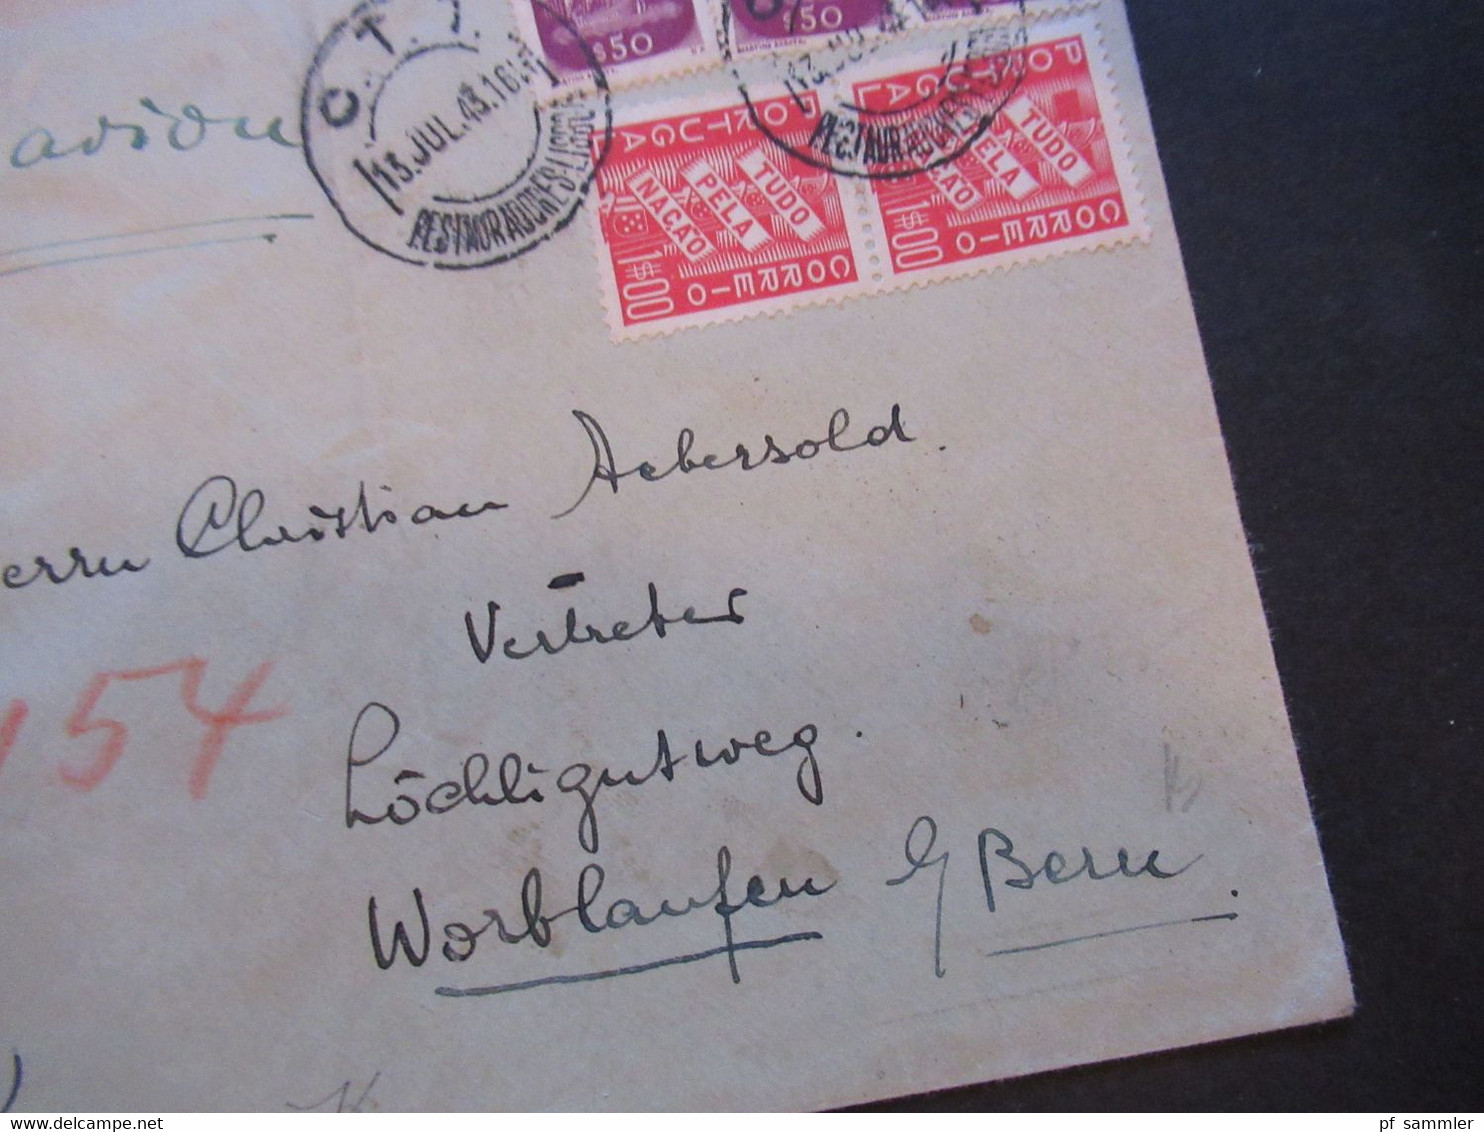 C. T. T.
13. JUL. 43. 16
RESTAURADORES-LISBOA
$50
$50
MARTINS BARATA
RESTAURADORES
PORTUGAL
TUDO
PELA
NAÇÃO
CORREIO
1$00
PORTUGAL
TUDO
PELA
NAÇÃO
CORREIO
1$00
avion
errn Christian Aebersold.
Vertreter
Löchligutweg.
154
Worblaufen b/Bern.
pf_sammler